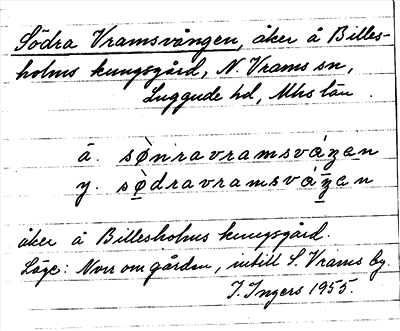 Södra Vramsvången, åker å Billes-
holms kungsgård, N. Vrams sn,
Luggude hd, Mhs län.
ä. sø̀nravramsváŋen
y. sø̀dravramsváŋen
åker å Billesholms kungsgård.
Läge: Nvr om gården, intill S. Vrams by.
I. Ingers 1955.